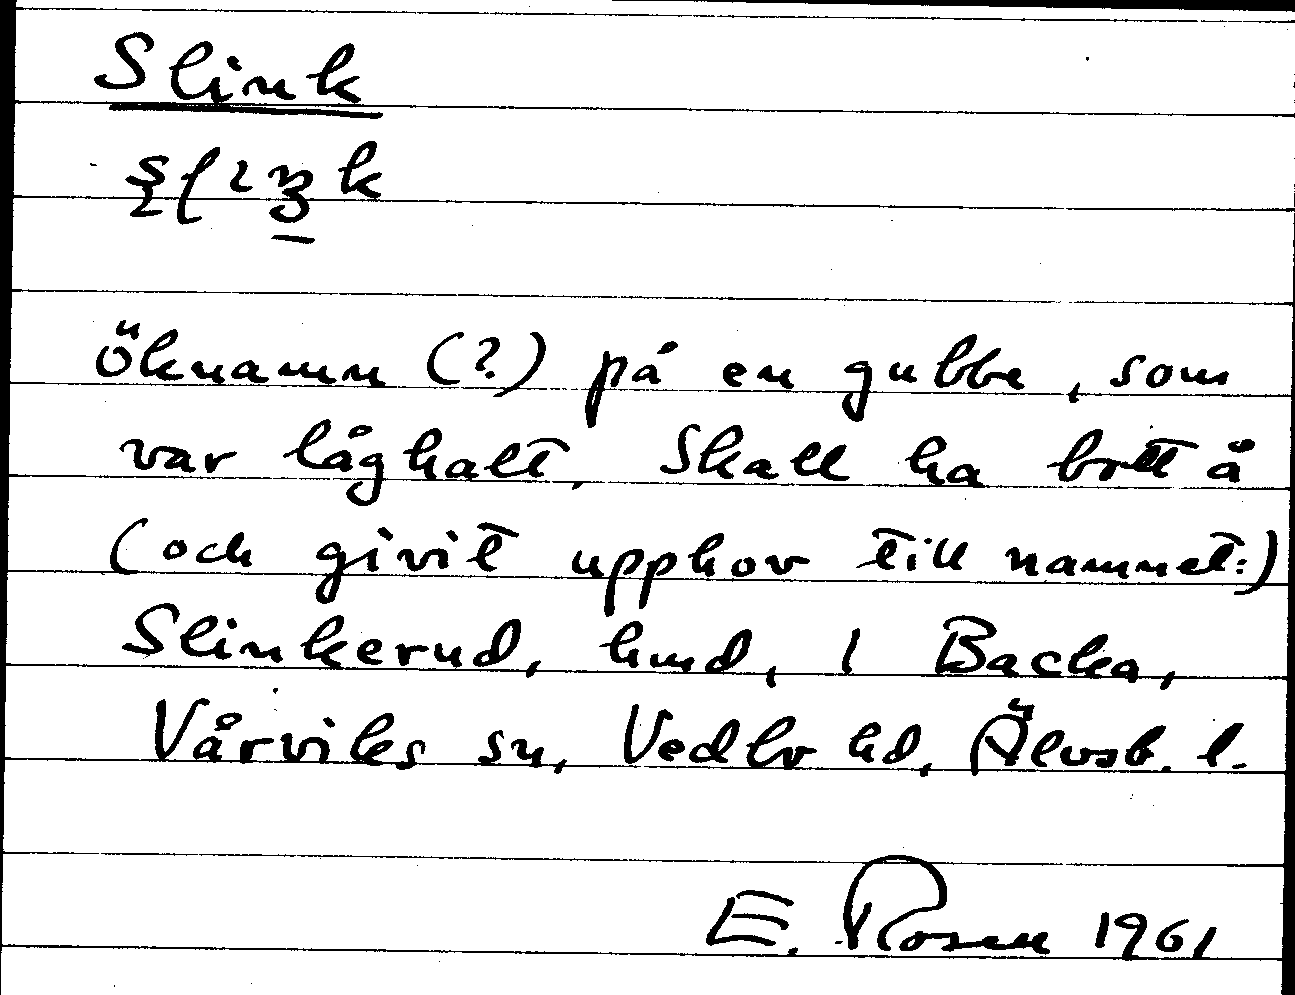 Slink
Öknamn (?) på en gubbe, som
var låghalt. Skall ha bott å
(och givit upphov till namnet:)
Slinkerud, hmd, 1 Backa,
Vårviks sn, Vedbo hd, Älvsb. l.
E. Rosen 1961